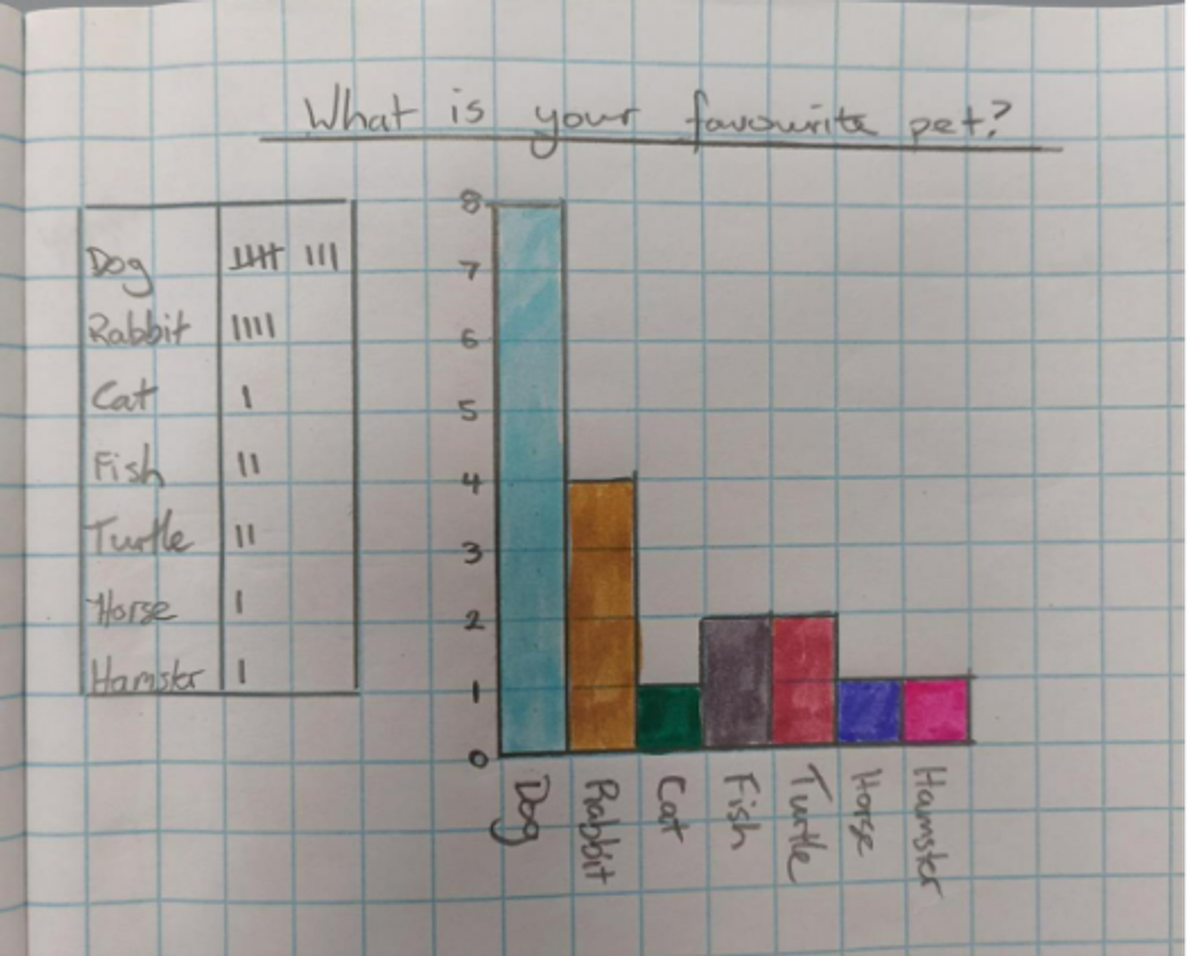 What is your favourite pet?
Dog 𝍸 III
Rabbit IIII
Cat I
Fish II
Turtle II
Horse I
Hamster I
8
7
6
5
4
3
2
1
0
Dog Rabbit Cat Fish Turtle Horse Hamster